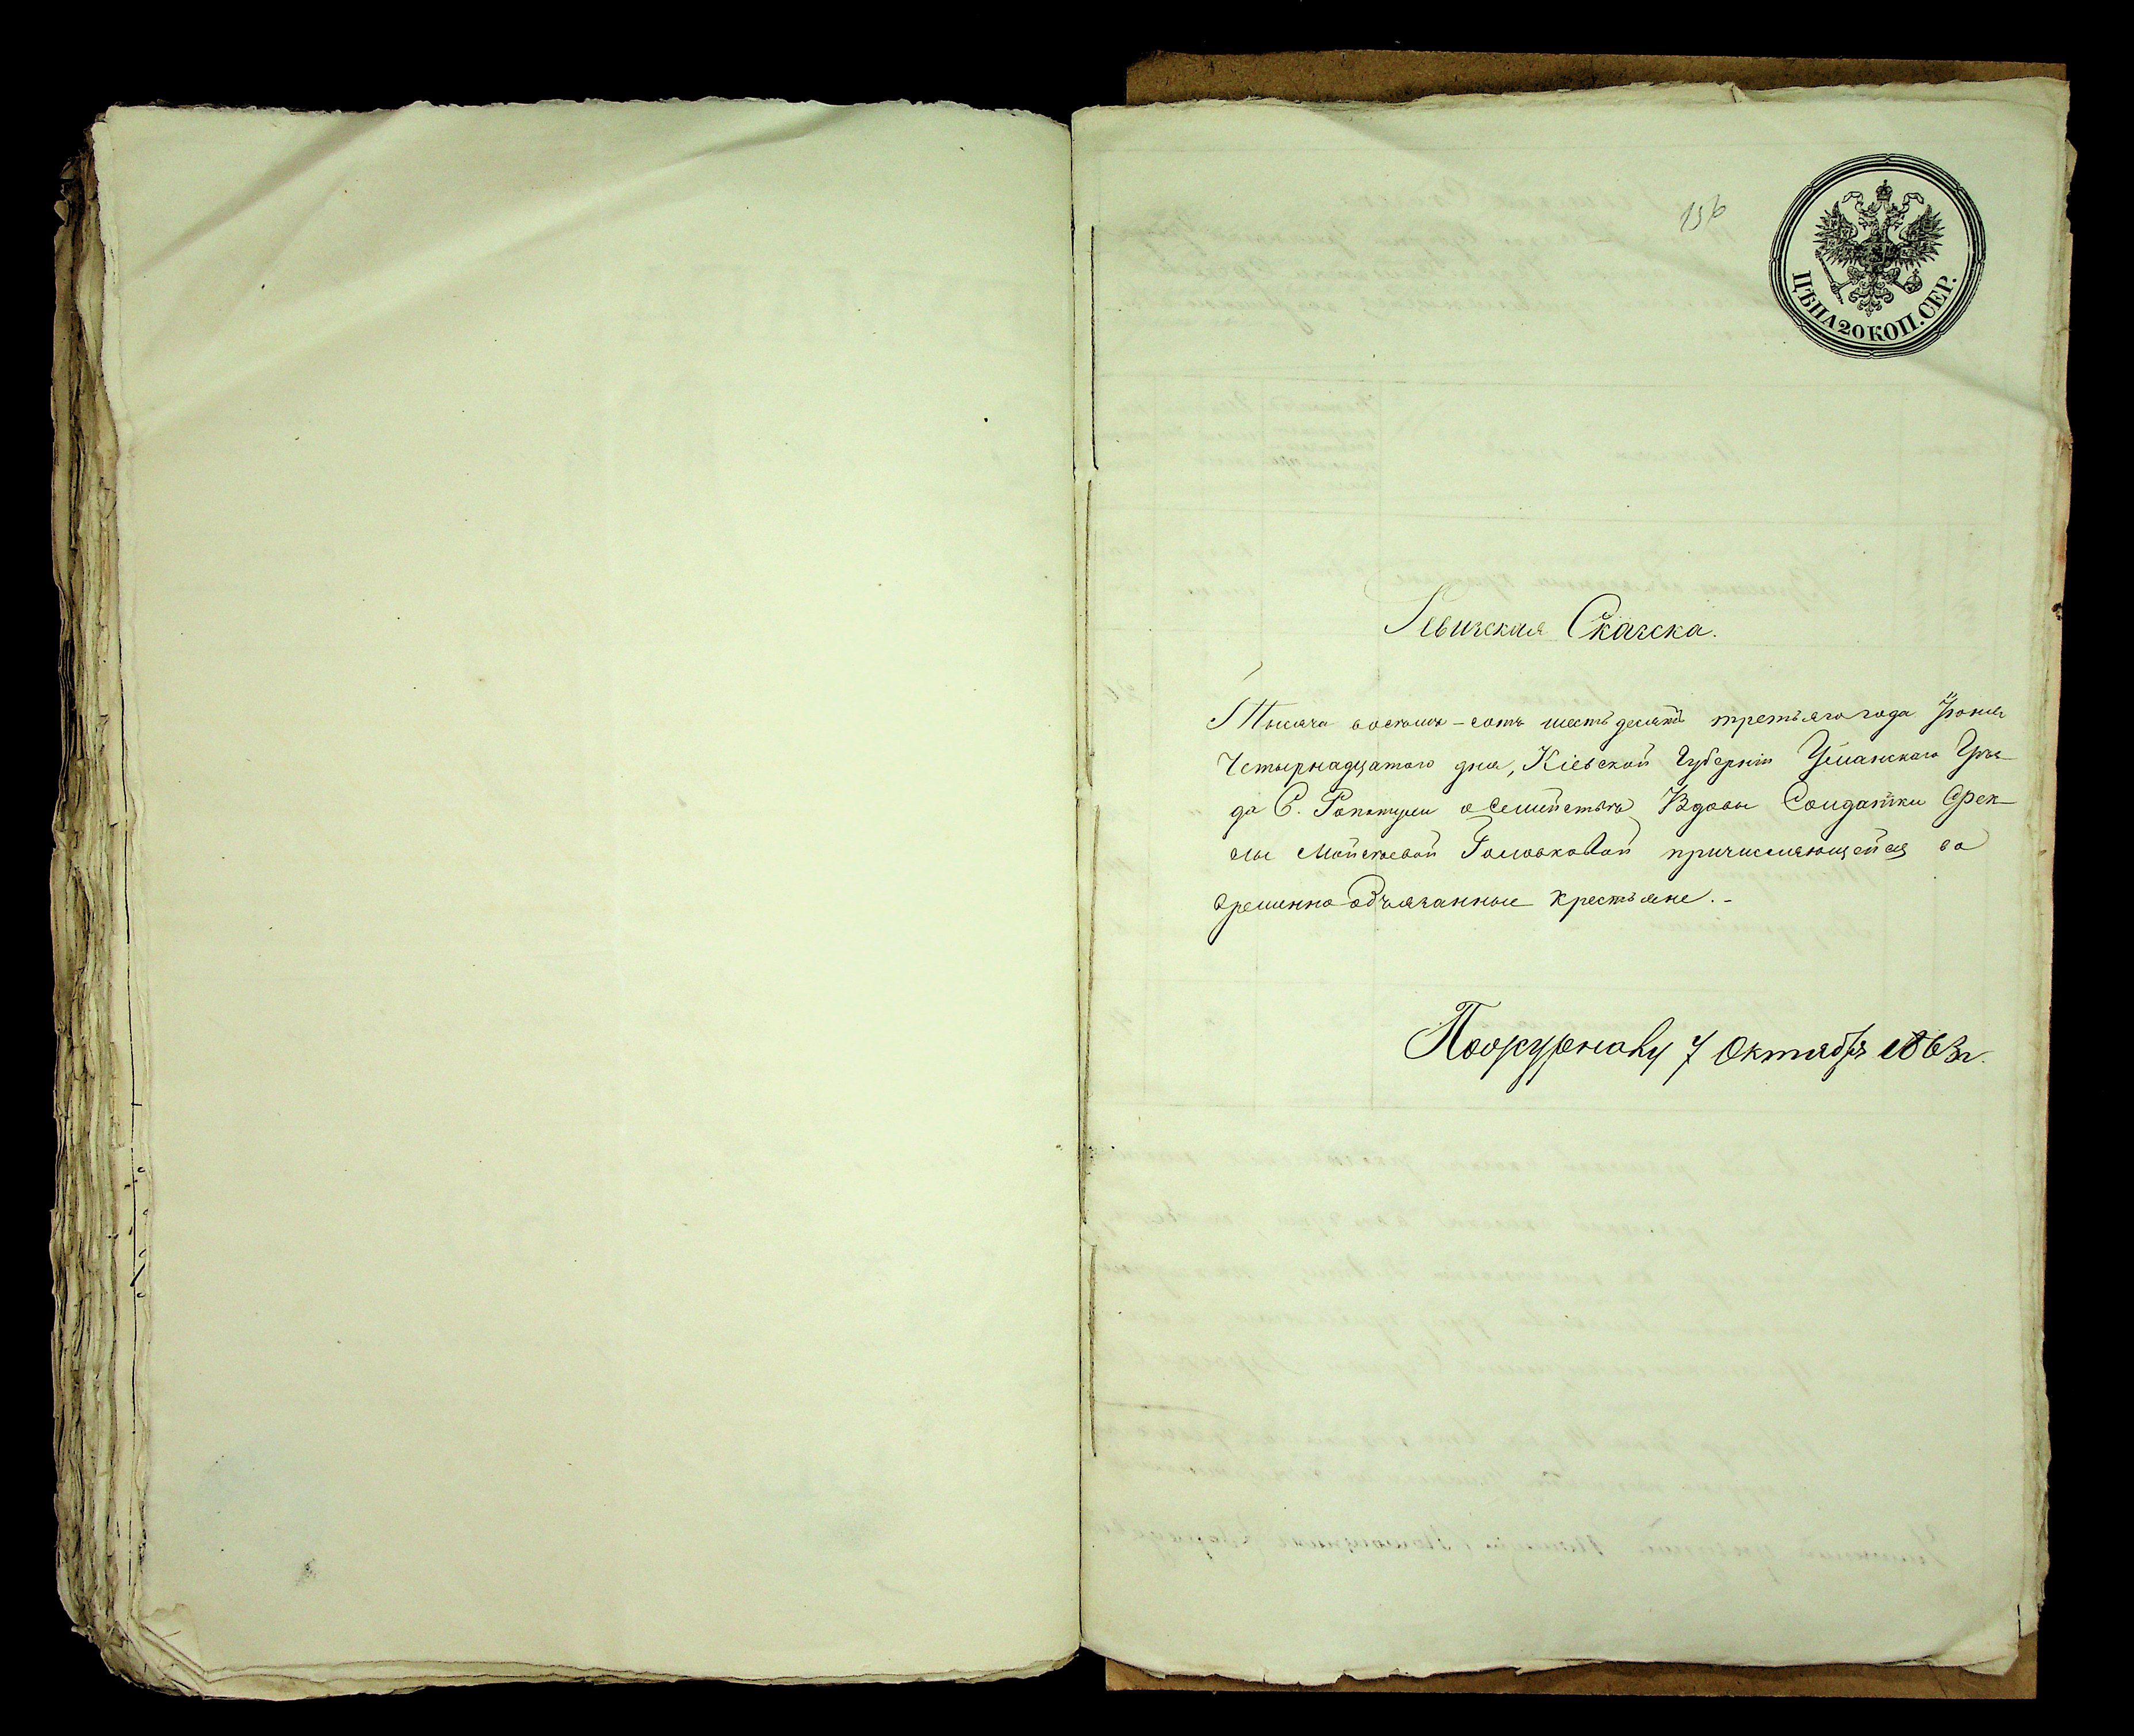 156
ЦѢНА 20 КОП. СЕР.
Ревизская Сказка.
Тысяча восемь-сотъ шестьдесятъ третьяго года Іюня
Четырнадцатого дня, Кіевской Губерніи Уманскаго Уѣз-
да С. о Семействѣ Вдовы Солдатки Фек-
лы Мойсеевой Головковой причисляющейся во
временно-обязанные крестьяне.-
По журналу 7 Октября 1863 г.